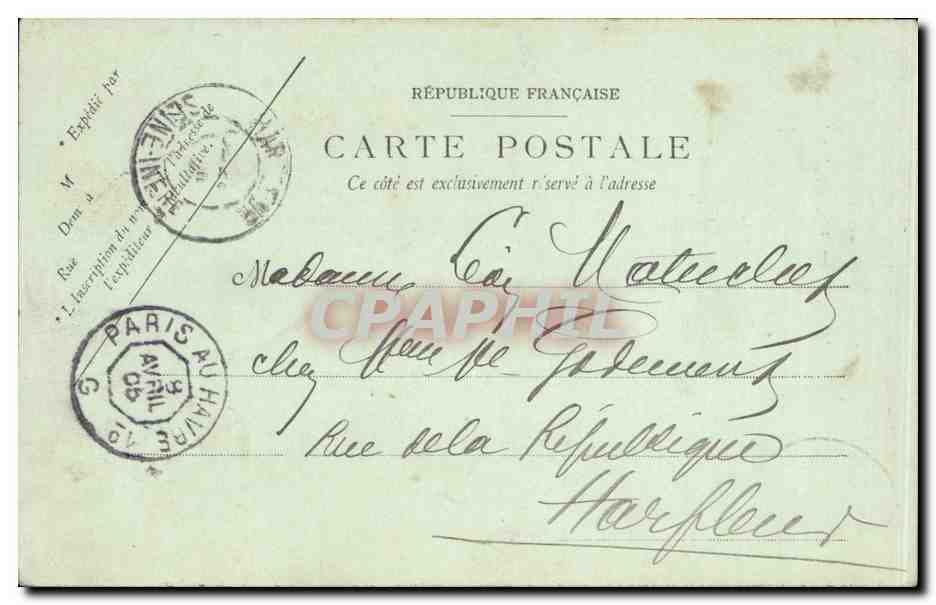 RÉPUBLIQUE FRANÇAISE
CARTE POSTALE
Ce côté est exclusivement réservé à l'adresse
• Expédié par
M
Dem à
Rue
• L'inscription du nom
l'expéditeur
l'adresse de
facultative.
SEINE-INFRE
PARIS AU HAVRE 1º
G
9
AVRIL
05
Madame
chez Mme Ve Godement
Rue de la République
Harfleur
CPAPHIL